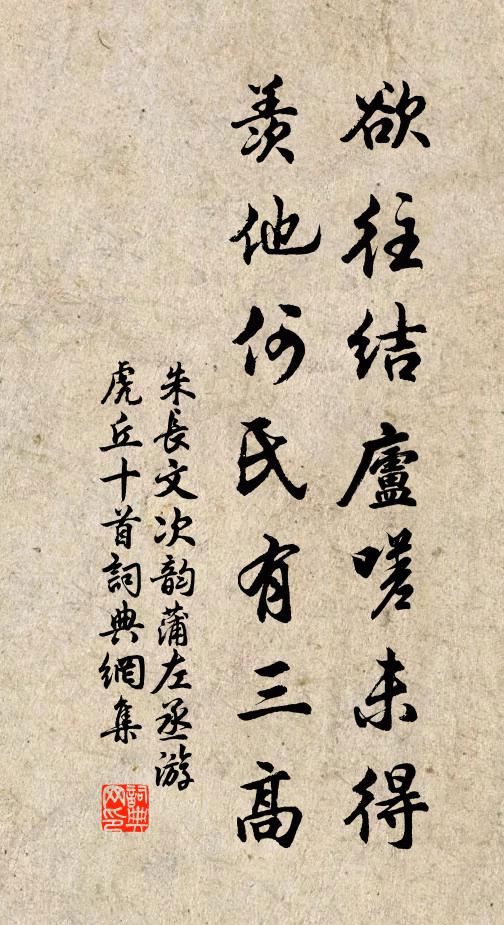 欲往結廬嗟未得
羨他何氏有三高
朱長文次韵蒲左丞游
虎丘十首詞典網集
詞典網印